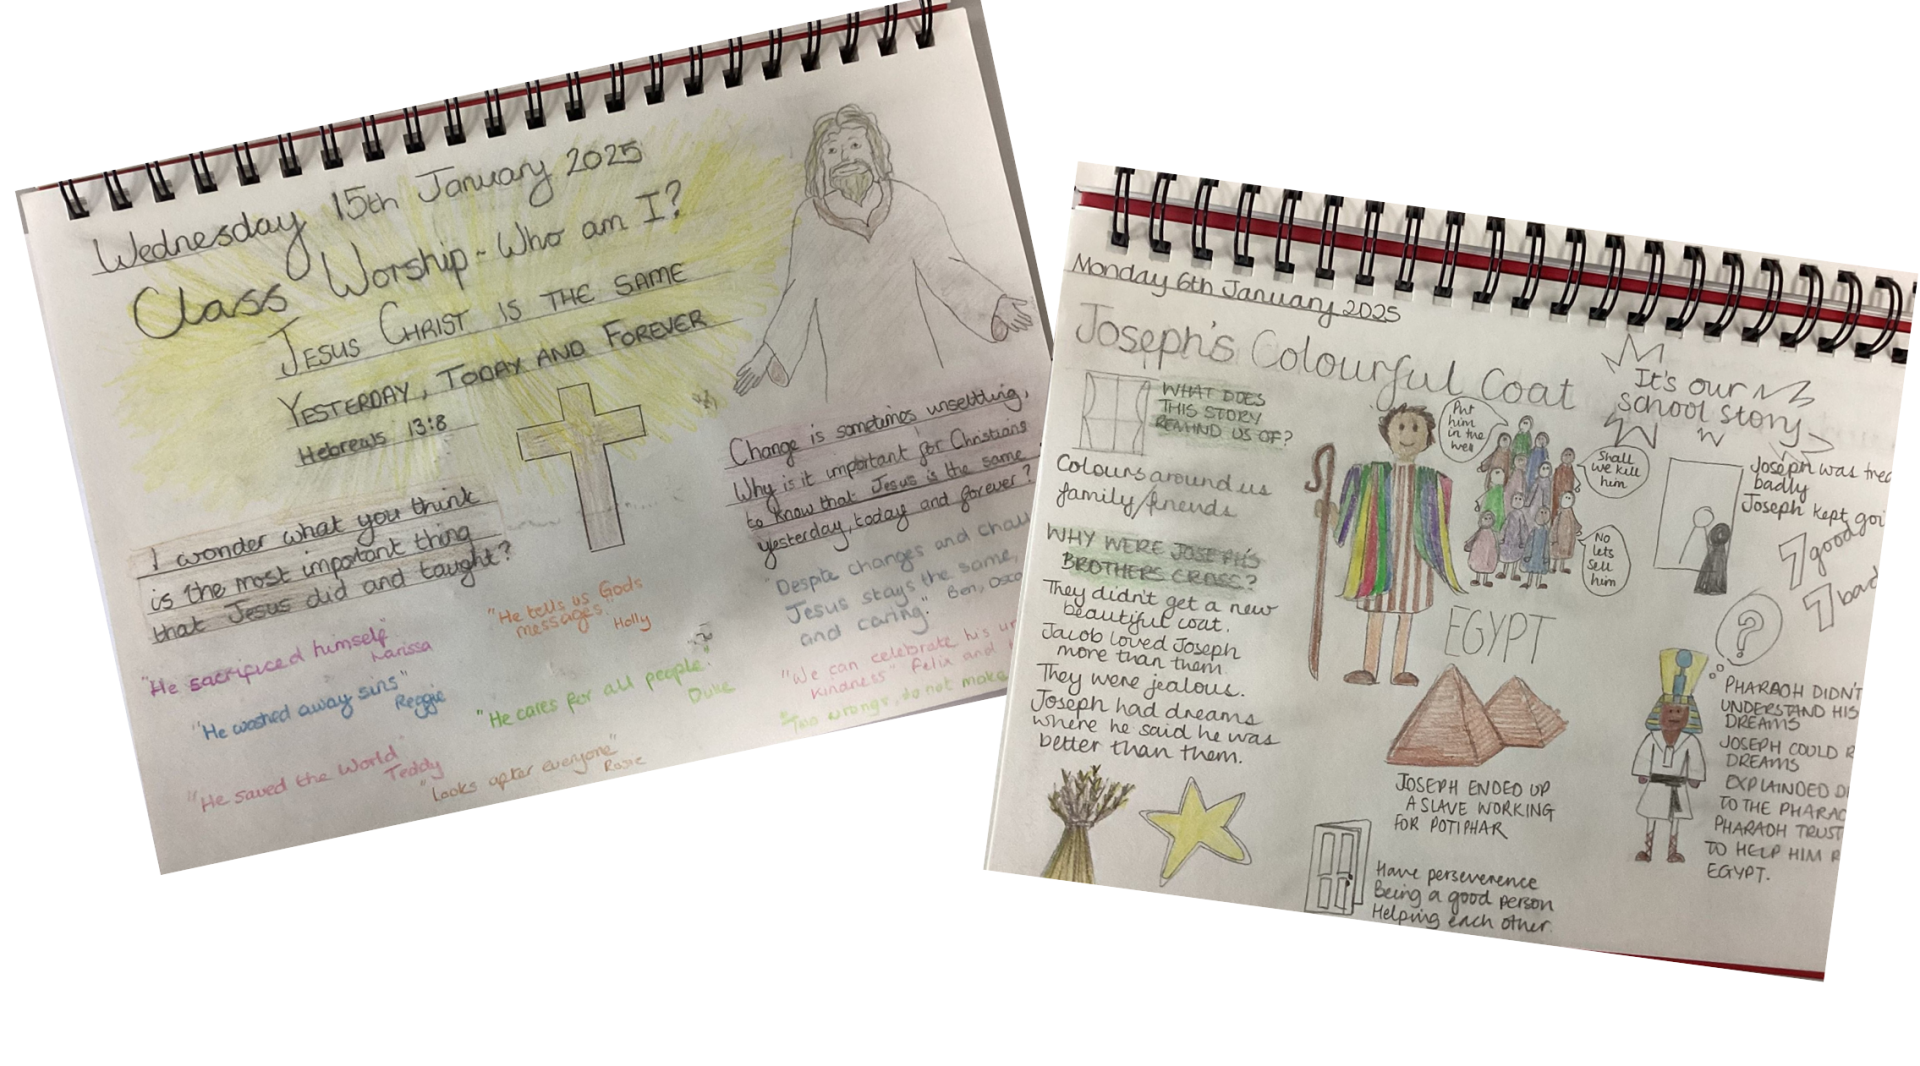 Wednesday 15th January 2025
Class Worship - Who am I?
JESUS CHRIST IS THE SAME
YESTERDAY, TODAY AND FOREVER
Hebrews 13:8
I wonder what you think
is the most important thing
that Jesus did and taught?
"He sacrificed himself"
Larissa
"He washed away sins"
Reggie
"He saved the World
Teddy
"He tells us Gods
messages."
Holly
"He cares for all people."
Duke
"Looks after everyone"
Rosie
Change is sometimes unsettling,
Why is it important for Christians
to know that Jesus is the same
yesterday, today and forever?
"Despite changes and chall
Jesus stays the same,
and caring." Ben, Osca
"We can celebrate his
kindness" Felix and
"Two wrongs, do not make
Monday 6th January 2025
Joseph's Colourful Coat
WHAT DOES
THIS STORY
REMIND US OF?
Colours around us
family/friends
WHY WERE JOSEPH'S
BROTHERS CROSS?
They didn't get a new
beautiful coat.
Jacob loved Joseph
more than them.
They were jealous.
Joseph had dreams
where he said he was
better than them.
Put
him
in the
well
Shall
we kill
him
No
lets
sell
him
EGYPT
JOSEPH ENDED UP
A SLAVE WORKING
FOR POTIPHAR
Have perseverence
Being a good person
Helping each other.
It's our
school story
Joseph was trea
badly
Joseph kept goi
7 good
7 bad
?
PHARAOH DIDN'T
UNDERSTAND HIS
DREAMS
JOSEPH COULD R
DREAMS
EXPLAINDED D
TO THE PHARAO
PHARAOH TRUST
TO HELP HIM R
EGYPT.